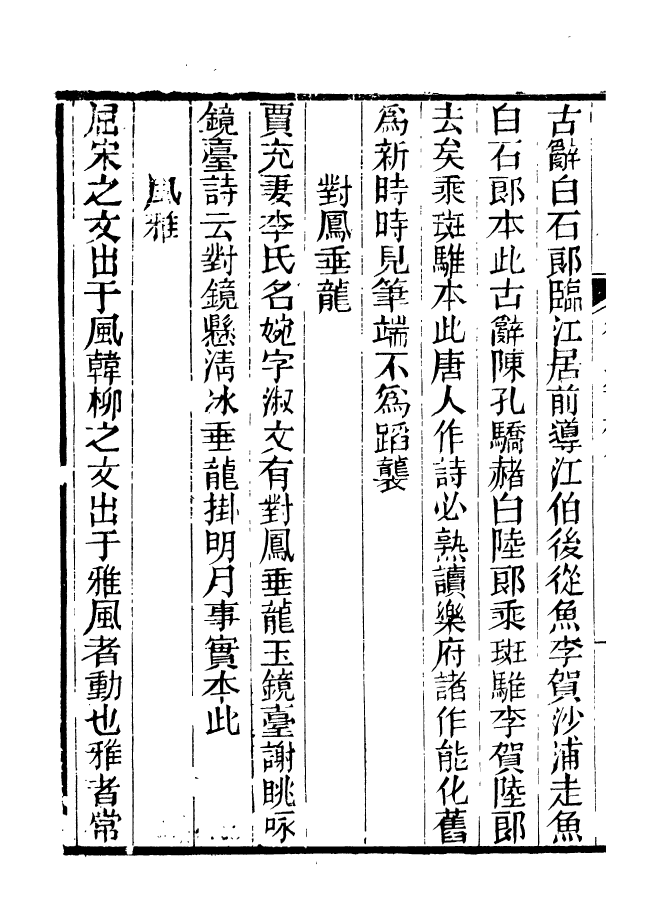 古辭白石郎臨江居前導江伯後從魚李賀沙浦走魚
白石郎本此古辭陳孔驕赭白陸郎乘斑騅李賀陸郎
去矣乘斑騅本此唐人作詩必熟讀樂府諸作能化舊
爲新時時見筆端不爲蹈襲
對鳳垂龍
賈充妻李氏名婉字淑文有對鳳垂龍玉鏡臺謝眺咏
鏡臺詩云對鏡懸清冰垂龍掛明月事實本此
風雅
屈宋之文出于風韓柳之文出于雅風者動也雅者常